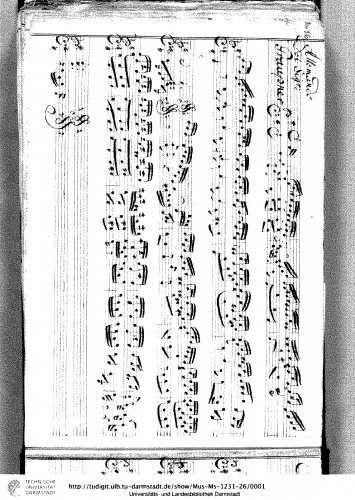 Allemande
del Sigr
Graupner
TECHNISCHE
UNIVERSITÄT
DARMSTADT
http://tudigit.ulb.tu-darmstadt.de/show/Mus-Ms-1231-26/0001
Universitäts- und Landesbibliothek Darmstadt